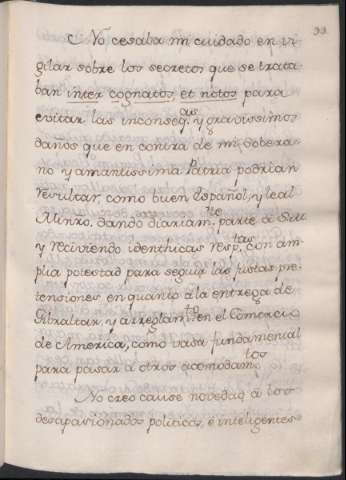 No cesaba mi cuidado en vi
gilar sobre los secretos que se trata
ban inter cognatos, et notos para
evitar las inconseq.as y gravissimos
daños que en contra de mi sobera
no y amantissima Patria podrian
resultar, como buen Español, y leal
Minro. dando diariam.te parte à Sett
y reciviendo identhicas resp.tas con am
plia potestad para seguir las justas pre
tensiones en quanto à la entrega de
Gibraltar, y arreglam.to en el Comercio
de America, como vasa fundamental
para pasar à otros acomodam.tos
No creo cause novedad à los
desapasionados politicos, è inteligentes